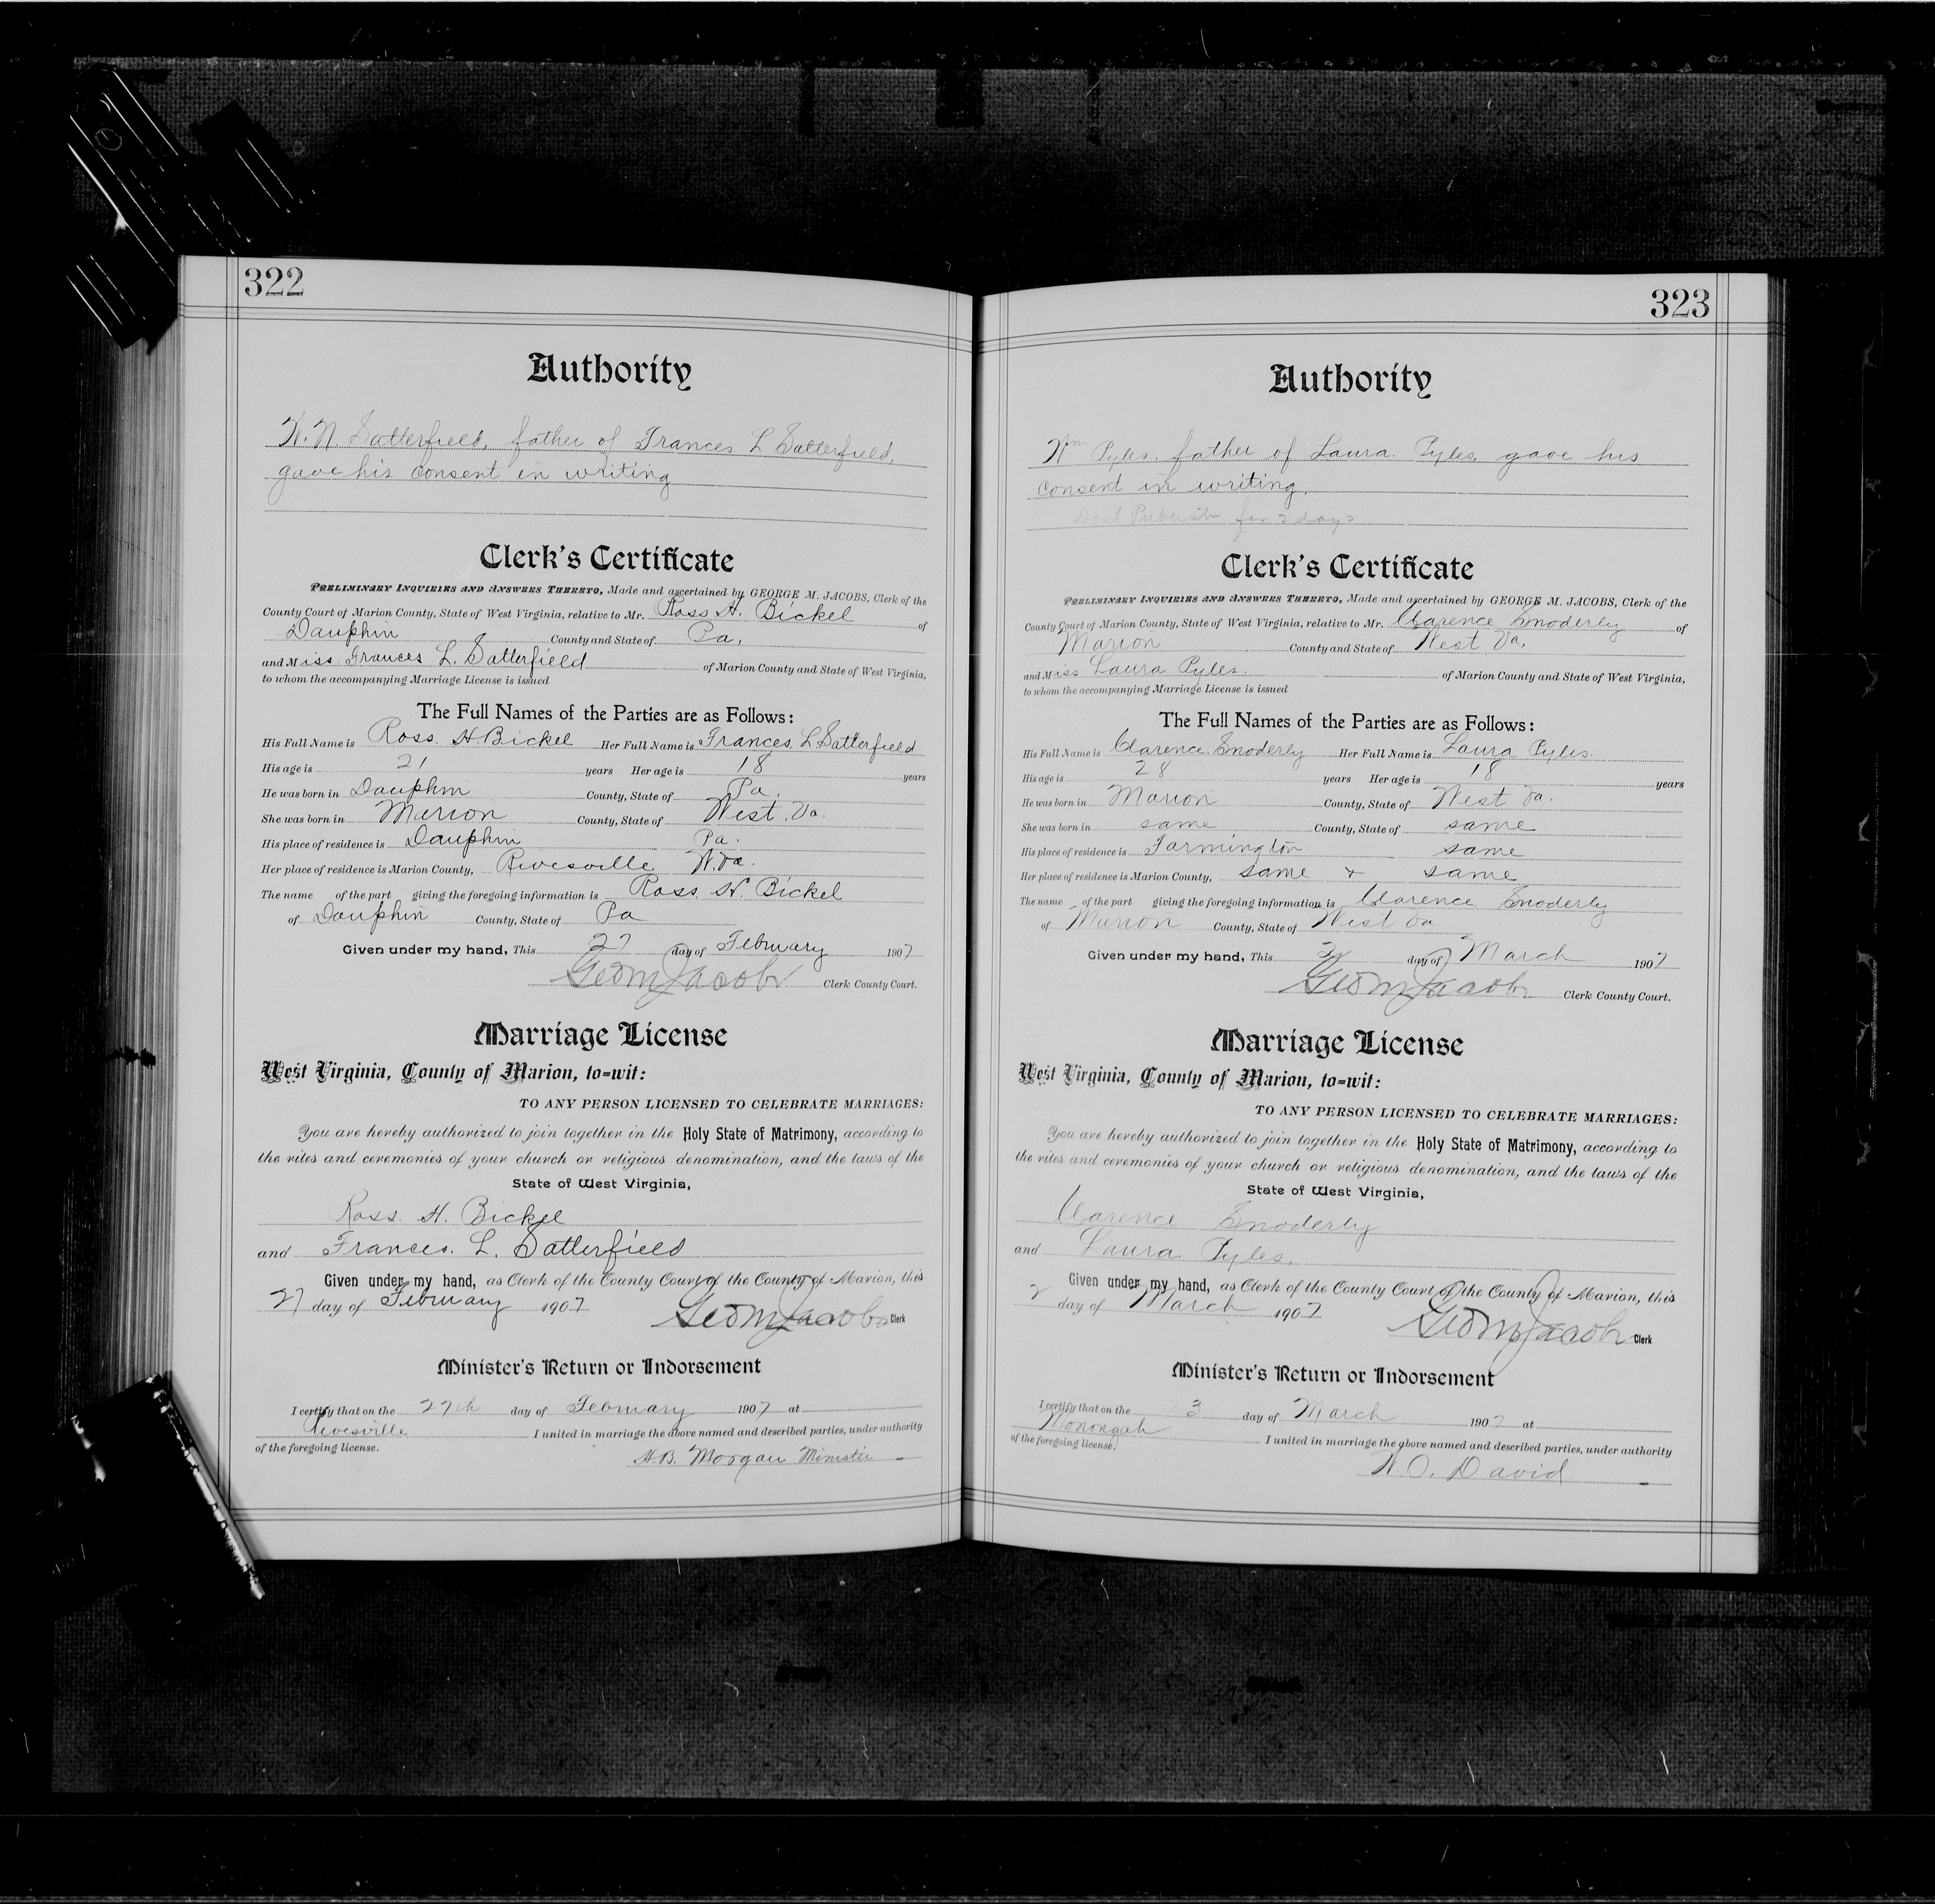 322
Authority
W. N. Satterfield, father of Frances L Satterfield,
gave his consent in writing
Clerk's Certificate
PRELIMINARY INQUIRIES AND ANSWERS THERETO, Made and ascertained by GEORGE M. JACOBS, Clerk of the
County Court of Marion County, State of West Virginia, relative to Mr. Ross H. Bickel of
Dauphin County and State of Pa,
and Miss Frances L. Satterfield of Marion County and State of West Virginia,
to whom the accompanying Marriage License is issued
The Full Names of the Parties are as Follows:
His Full Name is Ross. H Bickel Her Full Name is Frances. L. Satterfield
His age is 21 years Her age is 18 years
He was born in Dauphin County, State of Pa.
She was born in Marion County, State of West. Va.
His place of residence is Dauphin Pa.
Her place of residence is Marion County, Rivesville W. Va.
The name of the part giving the foregoing information is Ross. H. Bickel
of Dauphin County, State of Pa
Given under my hand, This 27 day of February 1907
Geo M Jacobs Clerk County Court.
Marriage License
West Virginia, County of Marion, to=wit:
TO ANY PERSON LICENSED TO CELEBRATE MARRIAGES:
You are hereby authorized to join together in the Holy State of Matrimony, according to
the rites and ceremonies of your church or religious denomination, and the laws of the
State of West Virginia,
Ross. H. Bickel
and Frances. L. Satterfield
Given under my hand, as Clerk of the County Court of the County of Marion, this
27 day of February 1907
Geo M Jacobs Clerk
Minister's Return or Indorsement
I certify that on the 27th day of February 1907 at
Rivesville I united in marriage the above named and described parties, under authority
of the foregoing license.
H.B. Morgan Minister
323
Authority
Wm. Pyles, father of Laura. Pyles, gave his
consent in writing.
Dont Publish for 2 days
Clerk's Certificate
PRELIMINARY INQUIRIES AND ANSWERS THERETO, Made and ascertained by GEORGE M. JACOBS, Clerk of the
County Court of Marion County, State of West Virginia, relative to Mr. Clarence Snoderly of
Marion County and State of West. Va.
and Miss Laura Pyles. of Marion County and State of West Virginia,
to whom the accompanying Marriage License is issued
The Full Names of the Parties are as Follows:
His Full Name is Clarence. Snoderly Her Full Name is Laura Pyles.
His age is 28 years Her age is 18 years
He was born in Marion County, State of West Va.
She was born in same County, State of same
His place of residence is Farmington same
Her place of residence is Marion County, same & same
The name of the part giving the foregoing information is Clarence Snoderly
of Marion County, State of West Va
Given under my hand, This 2 day of March 1907
Geo M Jacobs Clerk County Court.
Marriage License
West Virginia, County of Marion, to=wit:
TO ANY PERSON LICENSED TO CELEBRATE MARRIAGES:
You are hereby authorized to join together in the Holy State of Matrimony, according to
the rites and ceremonies of your church or religious denomination, and the laws of the
State of West Virginia,
Clarence Snoderly
and Laura Pyles.
Given under my hand, as Clerk of the County Court of the County of Marion, this
2 day of March 1907
Geo M Jacobs Clerk
Minister's Return or Indorsement
I certify that on the 3 day of March 1907 at
Monongah I united in marriage the above named and described parties, under authority
of the foregoing license.
W. O. David